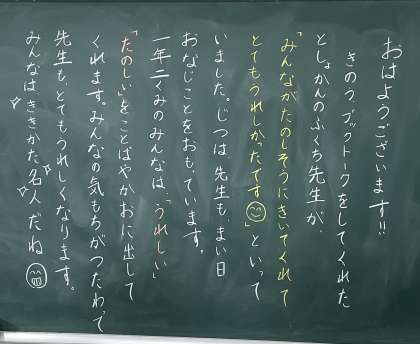 おはようございます!!
きのう、ブックトークをしてくれた
としょかんのふくち先生が、
「みんながたのしそうにきいてくれて
とてもうれしかったです😊」といって
いました。じつは、先生も、まい日
おなじことをおもっています。
一年二くみのみんなは、「うれしい」
「たのしい」をことばやかおに出して
くれます。みんなの気もちがつたわって
先生も、とてもうれしくなります。
みんなは、ききかた名人だね😁